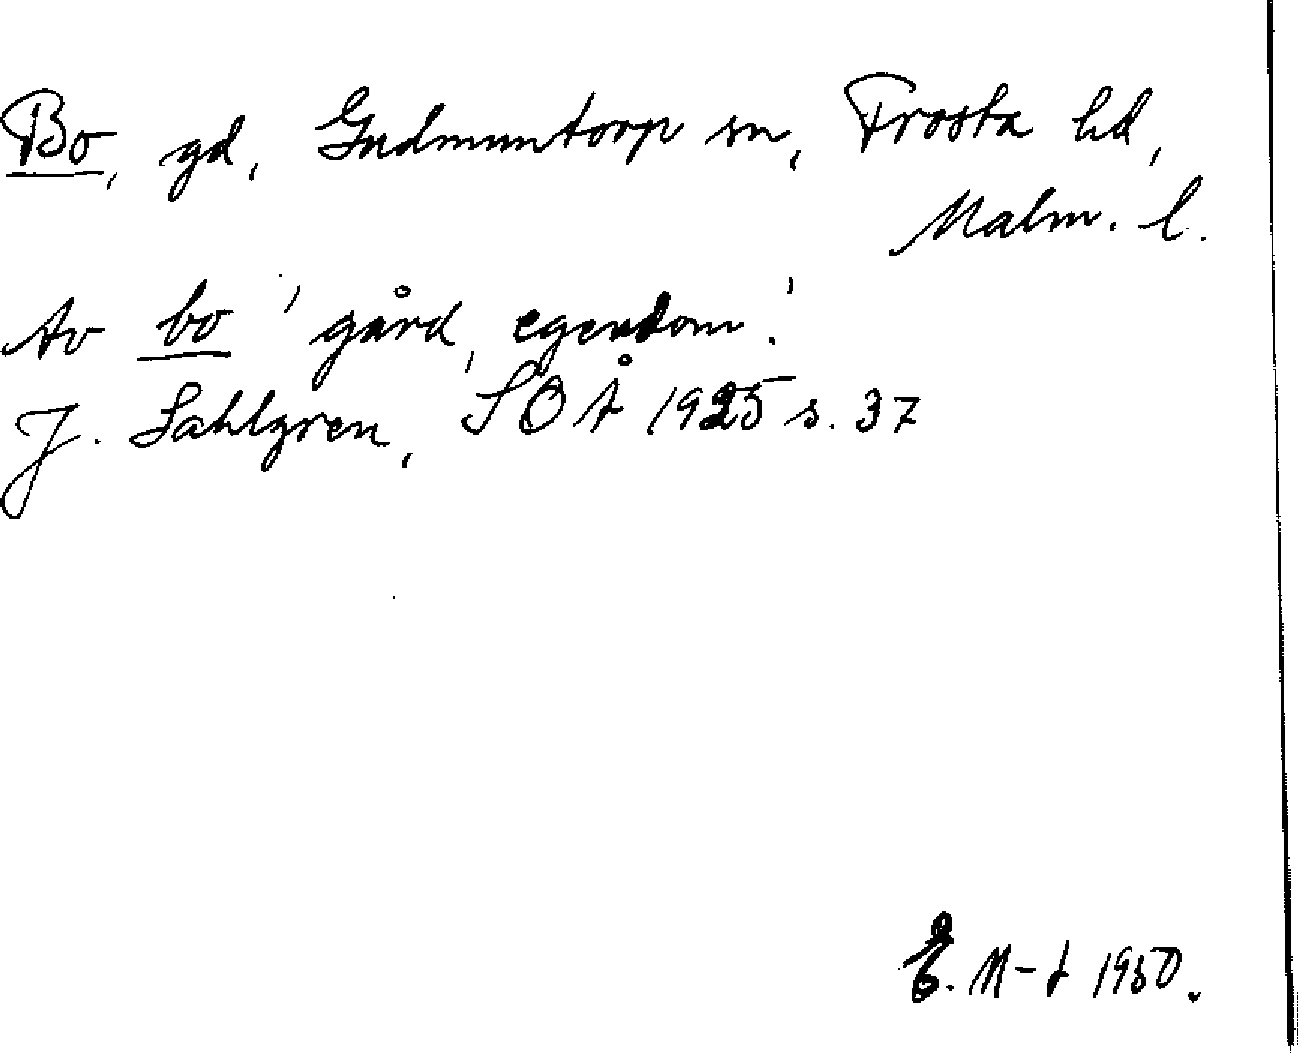 Bo, gd, Gudmuntorp sn, Frosta hd,
Malm. l.
Av bo 'gård, egendom'.
J. Sahlgren, SOÅ 1925 s. 37
E. M-t 1950.